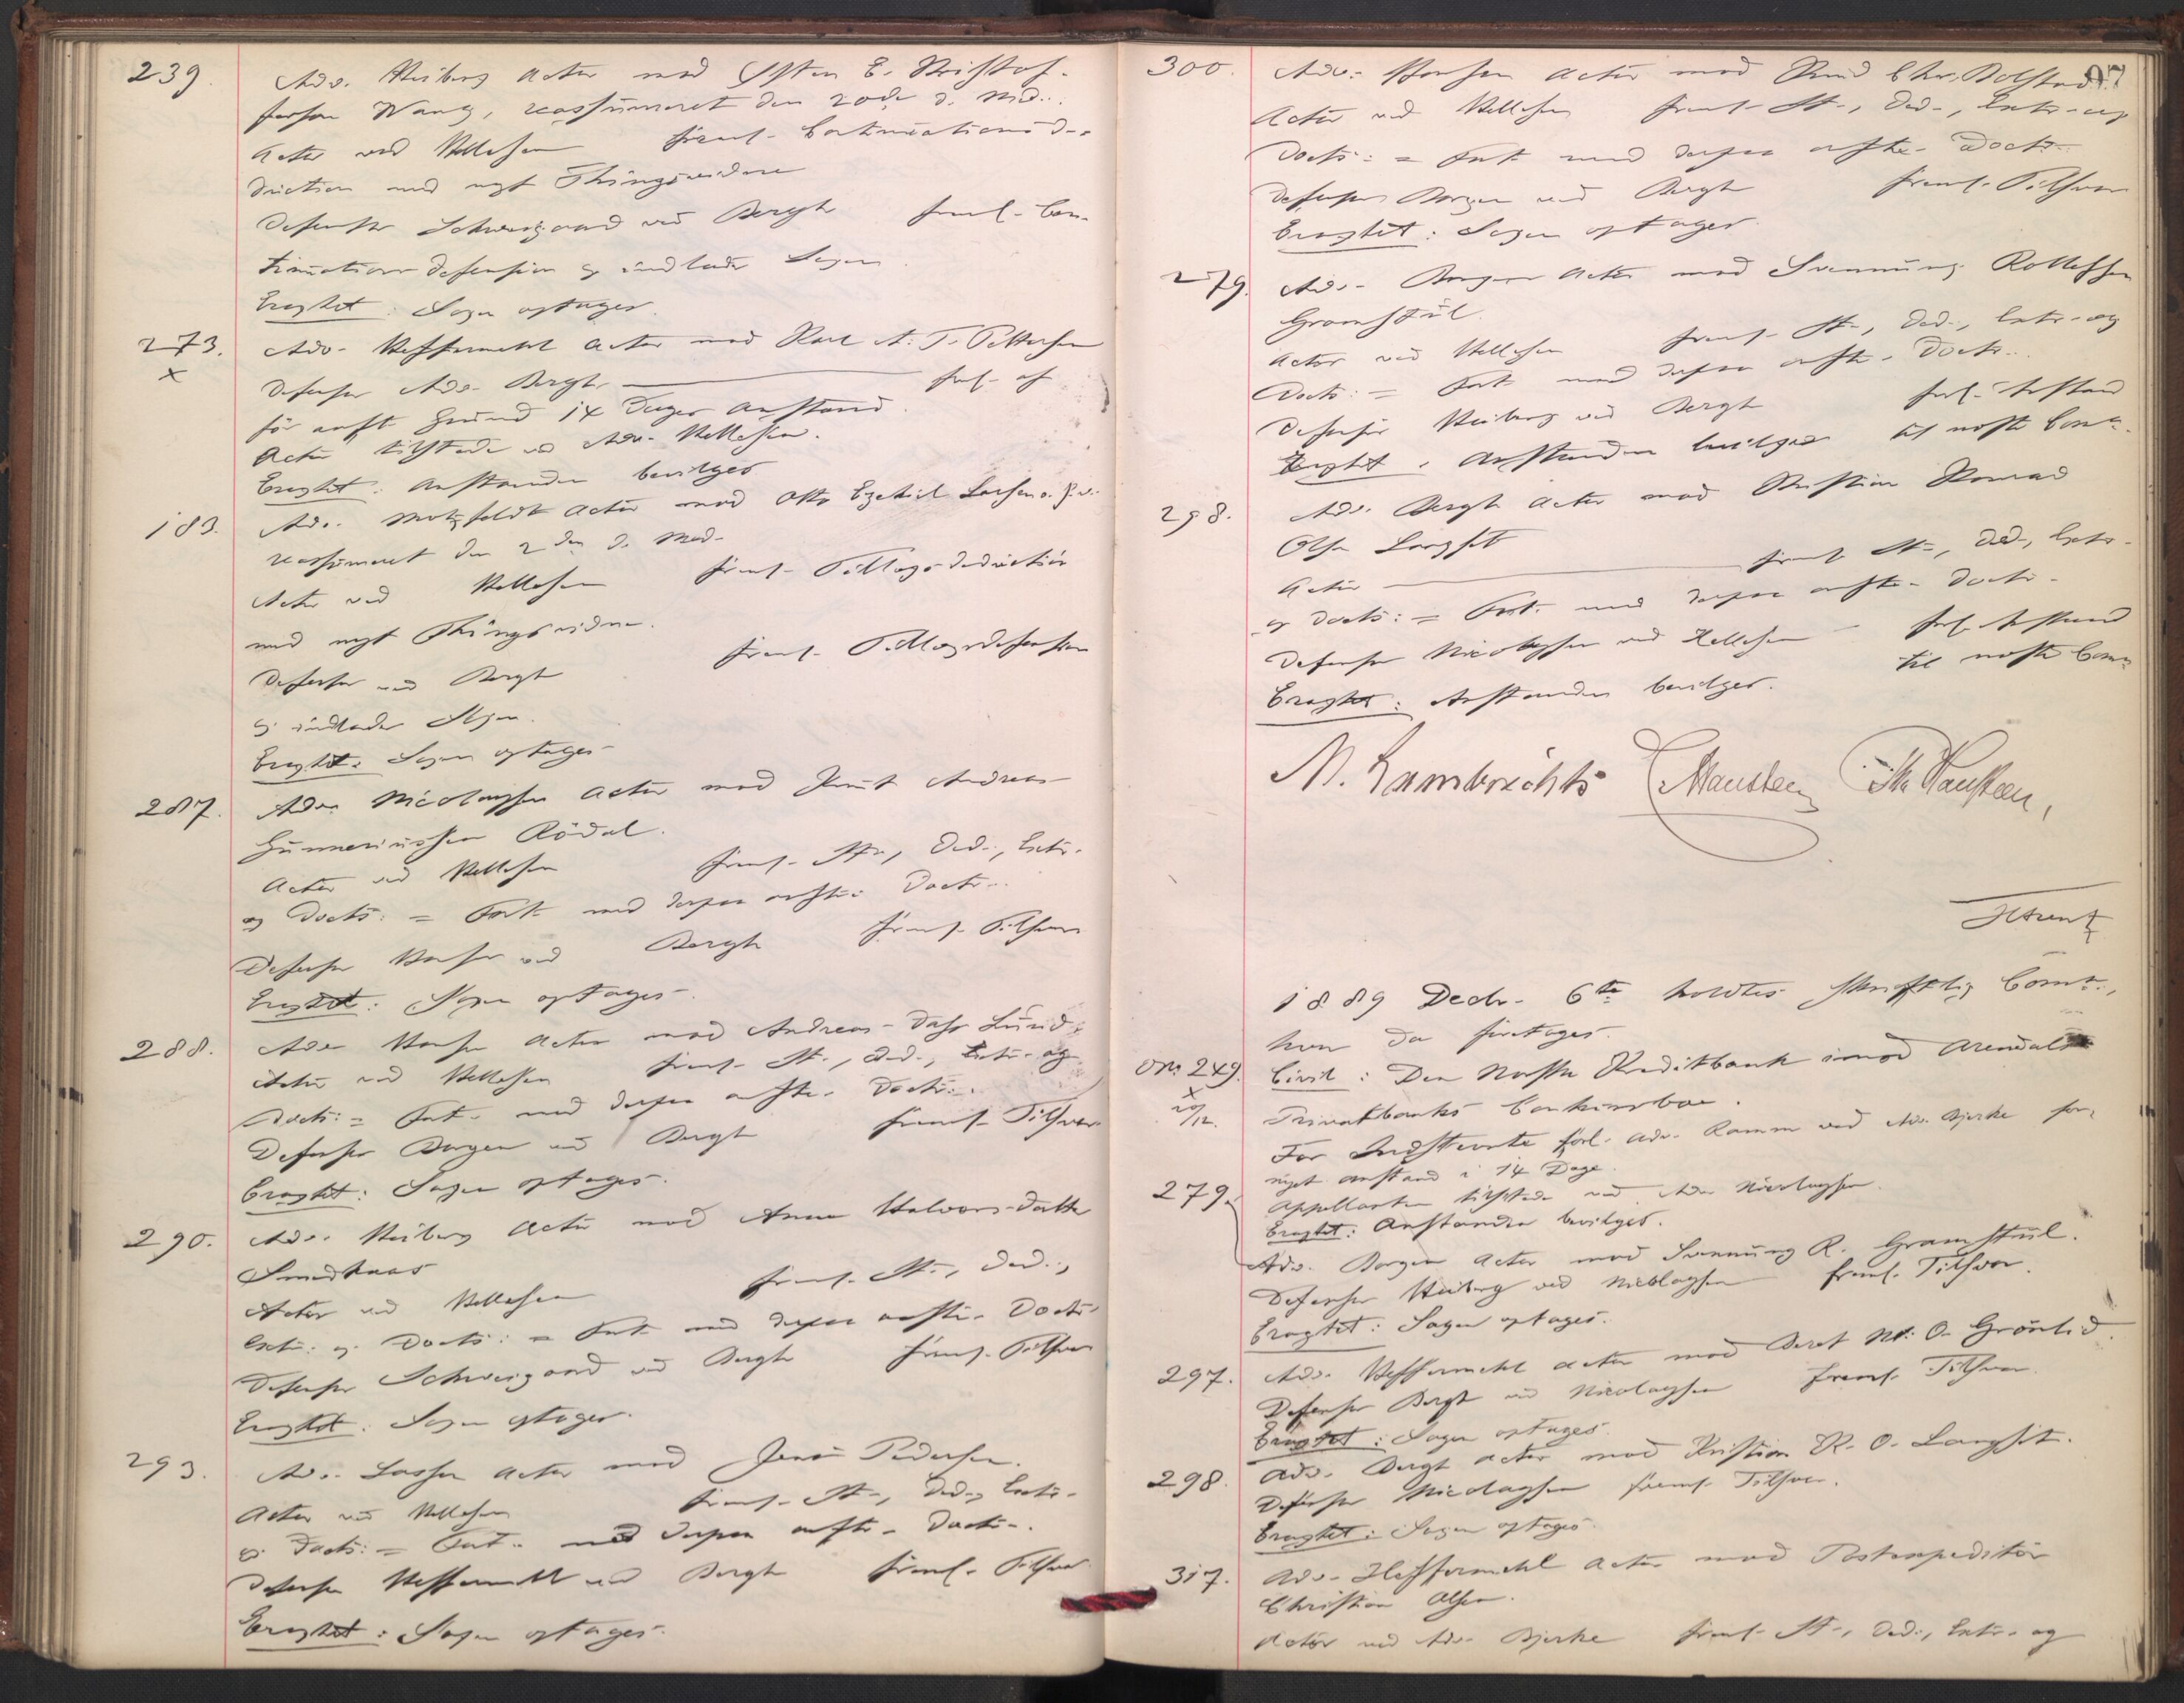 239. Adv. Heiberg Actor mod Gsten E. Kristof-
fersen Wang, reassumeret den 20de d. Md.
Actor ved Hellesen freml. Continuationsde-
duction med nyt Thingsvidne
Defensor Schweigaard ved Bergh freml. Con-
tinuationsdefension og indlader Sagen.
Eragtet: Sagen optages.
273. Adv. Heffermehl Actor mod Karl A. T. Pettersen
x
Defensor Adv. Bergh forl. af
for anf. Grund 14 Dages Anstand.
Actor tilstede ved Adv. Hellesen.
Eragtet: Anstanden bevilges
183. Adv. Motzfeldt Actor mod Otto Ezekiel Larsen o. fl.
reassumeret den 2den d. Md.
Actor ved Hellesen freml. Tillægsdeduction
med nyt Thingsvidne.
Defensor ved Bergh freml. Tillægsdefension
og indlader Sagen.
Eragtet: Sagen optages
287. Adv. Nicolaysen Actor mod Knut Andreas
Gunneriussen Rödal.
Actor ved Hellesen freml. St., Ded., Extr.
og Docts: = Fort. med derpaa anfte. Doctr.
Defensor Hansen ved Bergh freml. Tilsvar
Eragtet: Sagen optages.
288. Adv. Hansen Actor mod Andreas Dass Lund.
Actor ved Hellesen freml. St., Ded., Extr. og
Docts: = Fort. med derpaa anfte. Doctr.
Defensor Borgen ved Bergh freml. Tilsvar
Eragtet: Sagen optages.
290. Adv. Heiberg Actor mod Anne Halvorsdatter
Smedhaas
Actor ved Hellesen freml. St., Ded.,
Extr. og Docts: = Fort. med derpaa anfte. Doctr.
Defensor Schweigaard ved Bergh freml. Tilsvar
Eragtet: Sagen optages.
293. Adv. Lassen Actor mod Jens Pedersen.
Actor ved Hellesen freml. St., Ded., Extr.
og Docts: = Fort. med derpaa anfte. Doctr.
Defensor Heffermehl ved Bergh freml. Tilsvar
Eragtet: Sagen optages.
97
300. Adv. Hansen Actor mod Knud Chr. Bolstad.
Actor ved Hellesen freml. St., Ded., Extr. og
Docts: = Fort. med derpaa anfte. Doctr.
Defensor Borgen ved Bergh freml. Tilsvar
Eragtet: Sagen optages.
279. Adv. Borgen Actor mod Svennung Rollefsen
Gramstul.
Actor ved Hellesen freml. St., Ded., Extr. og
Docts: = Fort. med derpaa anfte. Doctr.
Defensor Heiberg ved Bergh forl. Anstand
til næste Comn.
Eragtet: Anstanden bevilges
298. Adv. Bergh Actor mod Kristian Konrad
Olsen Langset
Actor freml. St., Ded., Extr.
og Docts: = Fort. med derpaa anfte. Doctr.
Defensor Nicolaysen ved Hellesen forl. Anstand
til næste Comn
Eragtet: Anstanden bevilges.
M. Lambrechts Hansteen Hansteen,
1889 Decbr. 6te holdtes skriftlig Comn.,
hvor da foretages.
No. 249. Civil: Den Norske Kreditbank imod Arendals
x
20/12. Privatbanks Conkursbo.
For Indstevnte forl. Adv. Ramm ved Adv. Bjerke for-
nyet Anstand i 14 Dage.
Appellanten tilstede ved Adv. Nicolaysen.
Eragtet: Anstanden bevilges.
279. Adv. Borgen Actor mod Svennung R. Gramstul.
Defensor Heiberg ved Nicolaysen freml. Tilsvar.
Eragtet: Sagen optages.
297. Adv. Heffermehl Actor mod Beret M. O. Grönlid.
Defensor Bergh ved Nicolaysen freml. Tilsvar.
Eragtet: Sagen optages.
298. Adv. Bergh Actor mod Kristian K. O. Langset.
Defensor Nicolaysen freml. Tilsvar.
Eragtet: Sagen optages.
317. Adv. Heffermehl Actor mod Postexpeditör
Christian Olsen.
Actor ved Adv. Bjerke freml. St., Ded., Extr. og